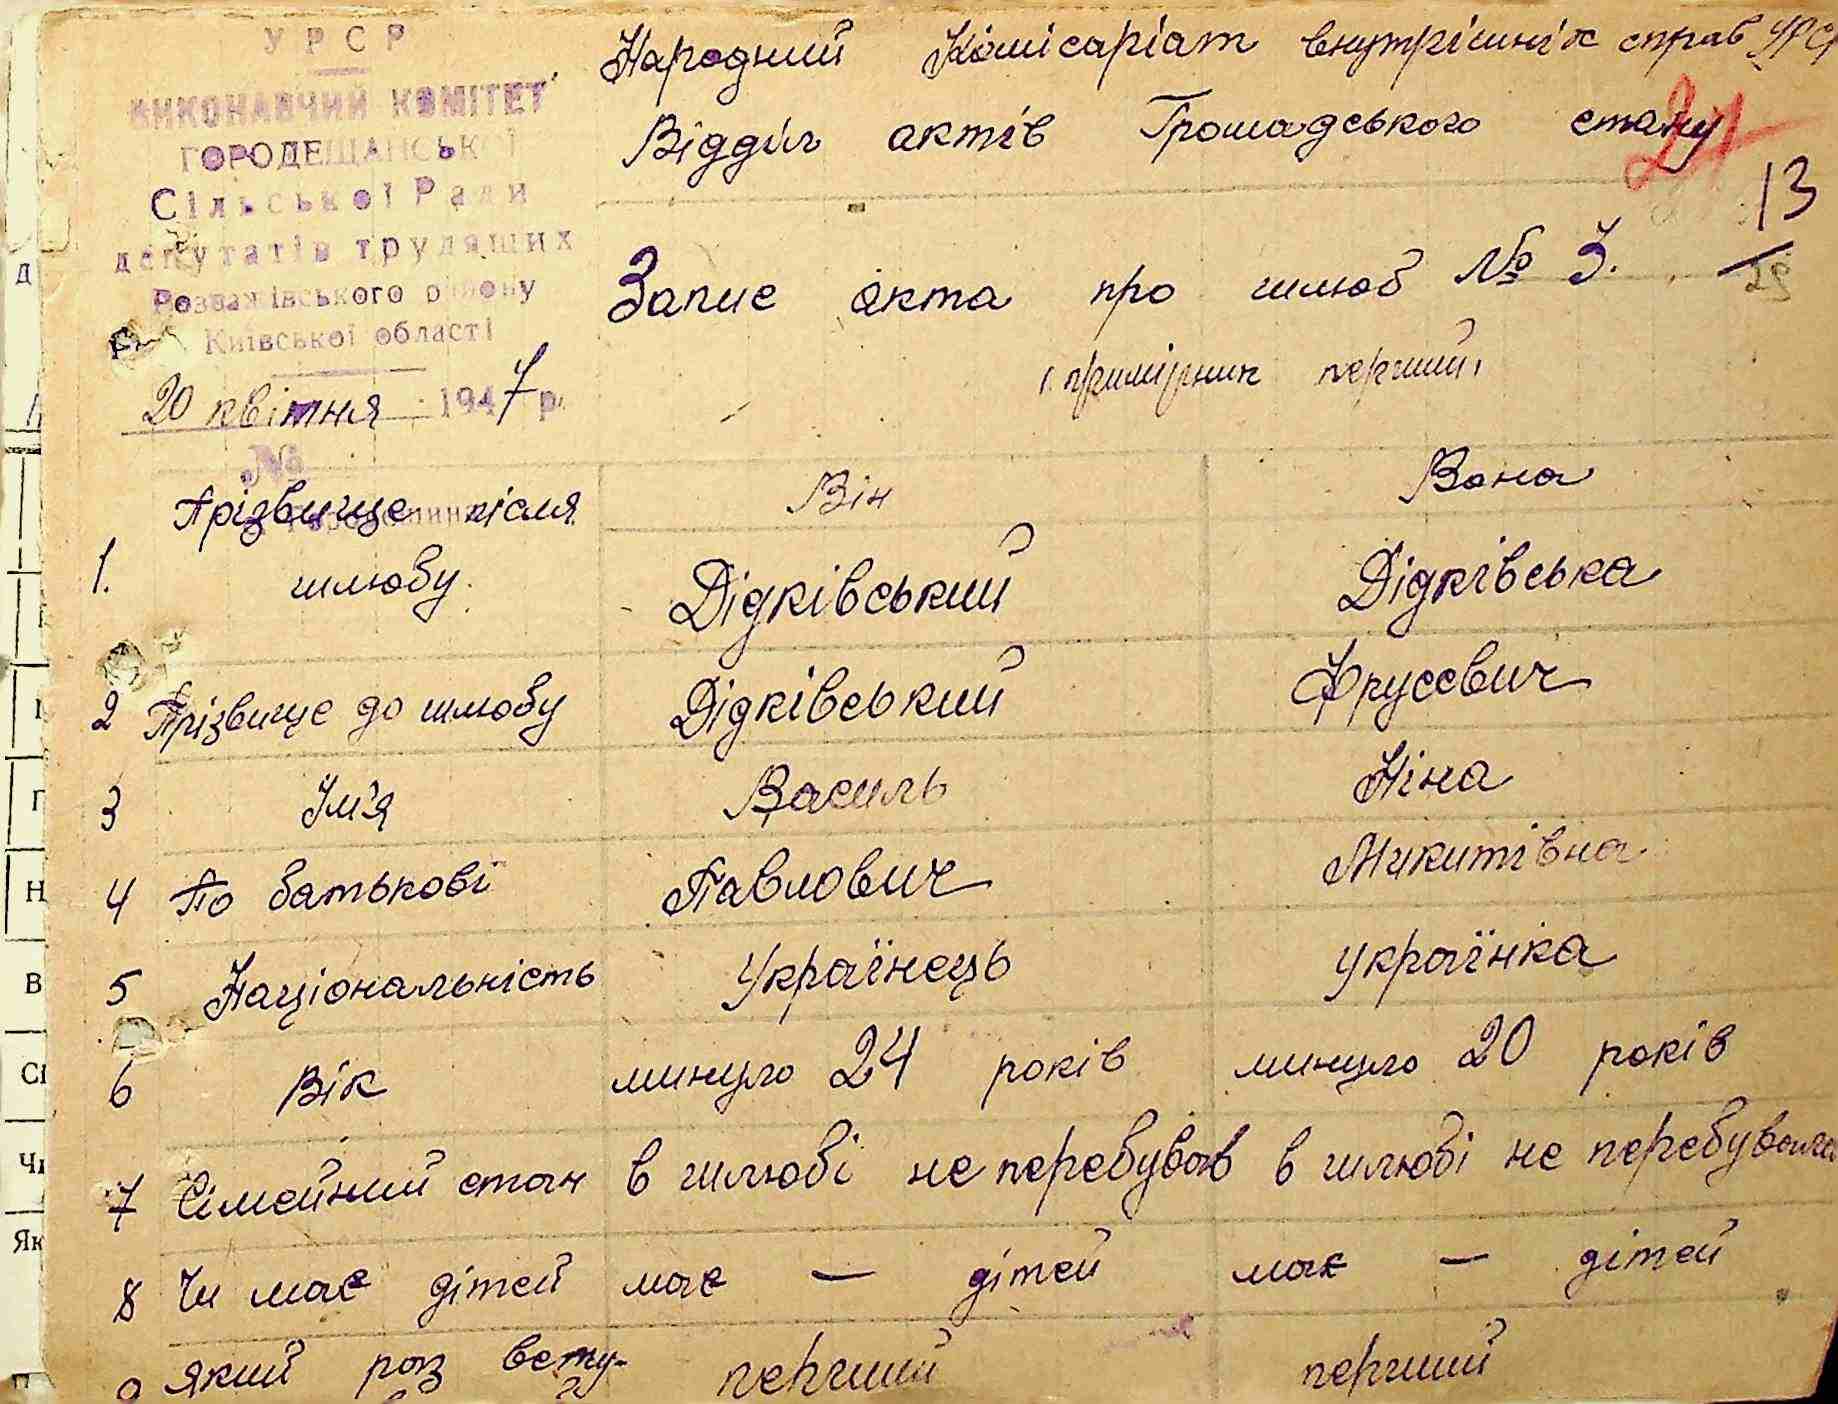 УРСР
ВИКОНАВЧИЙ КОМІТЕТ
ГОРОДЕЩАНСЬКОЇ
Сільської Ради
депутатів трудящих
Розважівського району
Київської області
20 квітня 1947 р.
№
Народний Комісаріат внутрішніх справ УРСР
Відділ актів Громадського стану
21
13
Запис акта про шлюб № 3.
(примірник перший)
Він Вона
1. Прізвище після шлюбу. Дідківський Дідківська
2 Прізвище до шлюбу Дідківський Фрусевич
3 Ім'я Василь Ніна
4 По батькові Павлович Микитівна
5 Національність Українець Українка
6 Вік минуло 24 років минуло 20 років
7 Сімейний стан в шлюбі не перебував в шлюбі не перебувала
8 Чи має дітей має — дітей має — дітей
9 Який раз всту- перший перший
Д
Н
В
Сі
Чи
Як